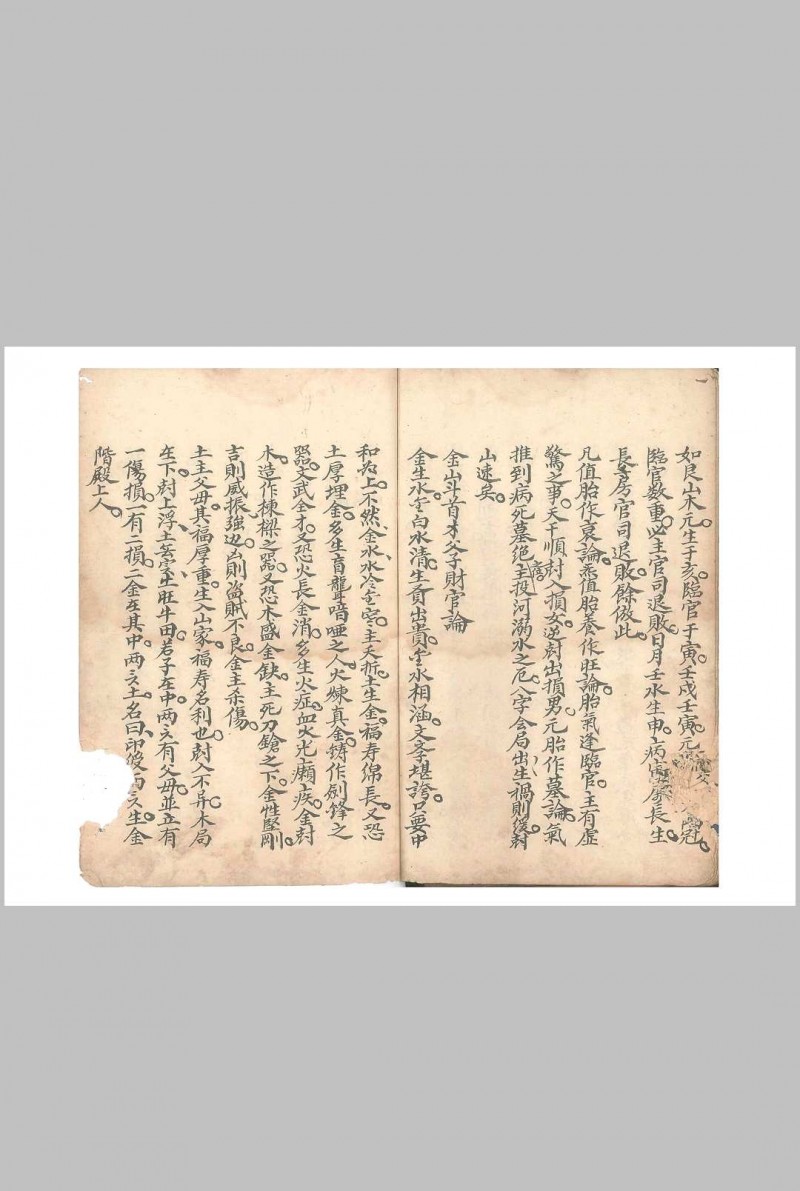 如艮山木元生于亥。臨官于寅。壬戍壬寅。元冠。
臨官数重。必主官司退敗。日月壬水生申。病寅。長生
長房官司退敗。餘倣此。
凡值胎作衰論。柰值胎養作旺論。胎氣逢臨官。主有虛
驚之事。天干順尅入損女。逆尅出損男。元胎作墓論。氣
推到病死墓絶。主投河溺水之厄。八字会局出生禍則緩。尅
山速矣。
金山斗首才父子財官論
金生水。金白水清。生貢出貴。金水相涵。文孛堪誇。只要中
和為上。不然金水水冷金寒。主夭折。土生金。福寿綿長。又恐
土厚埋金。多生盲聾喑啞之人。火煉真金。鋳作劍鋒之
器。文武全才。又恐火長金消。多生火症。血火光癩疾。金尅
木。造作棟樑之器。又恐木盛金缺。主死刀鎗之下。金性堅剛。
吉則威振強边。凶則盗賊不良。金主杀傷。
土主父母。其福厚重。生入山家。福寿名利也。尅入不异。木局
在下。尅上浮土。土旺牛田。若子在中。两亥有父母並立。有
一傷損。一有二損。二金在其中。两亥土。名曰印绶。两亥生金
階殿上人。